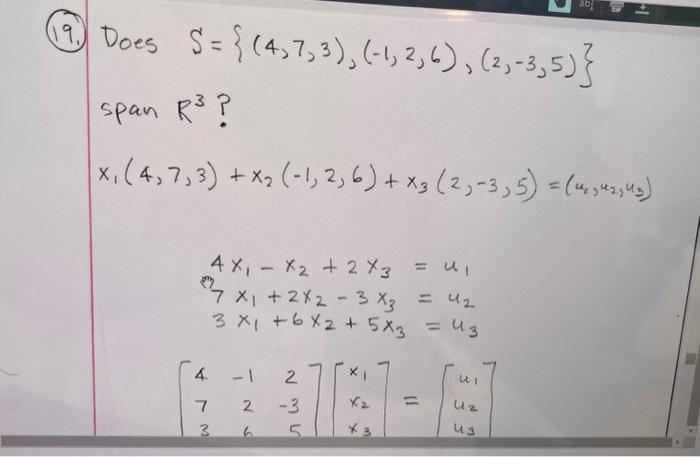 19. Does S = { (4,7,3), (-1,2,6), (2,-3,5) }
span R³ ?
x₁(4,7,3) + x₂(-1,2,6) + x₃(2,-3,5) = (u₁,u₂,u₃)
4x₁ - x₂ + 2x₃ = u₁
7x₁ + 2x₂ - 3x₃ = u₂
3x₁ + 6x₂ + 5x₃ = u₃
[4 -1 2] [x₁] = [u₁]
[7 2 -3] [x₂] = [u₂]
[3 6 5] [x₃] = [u₃]